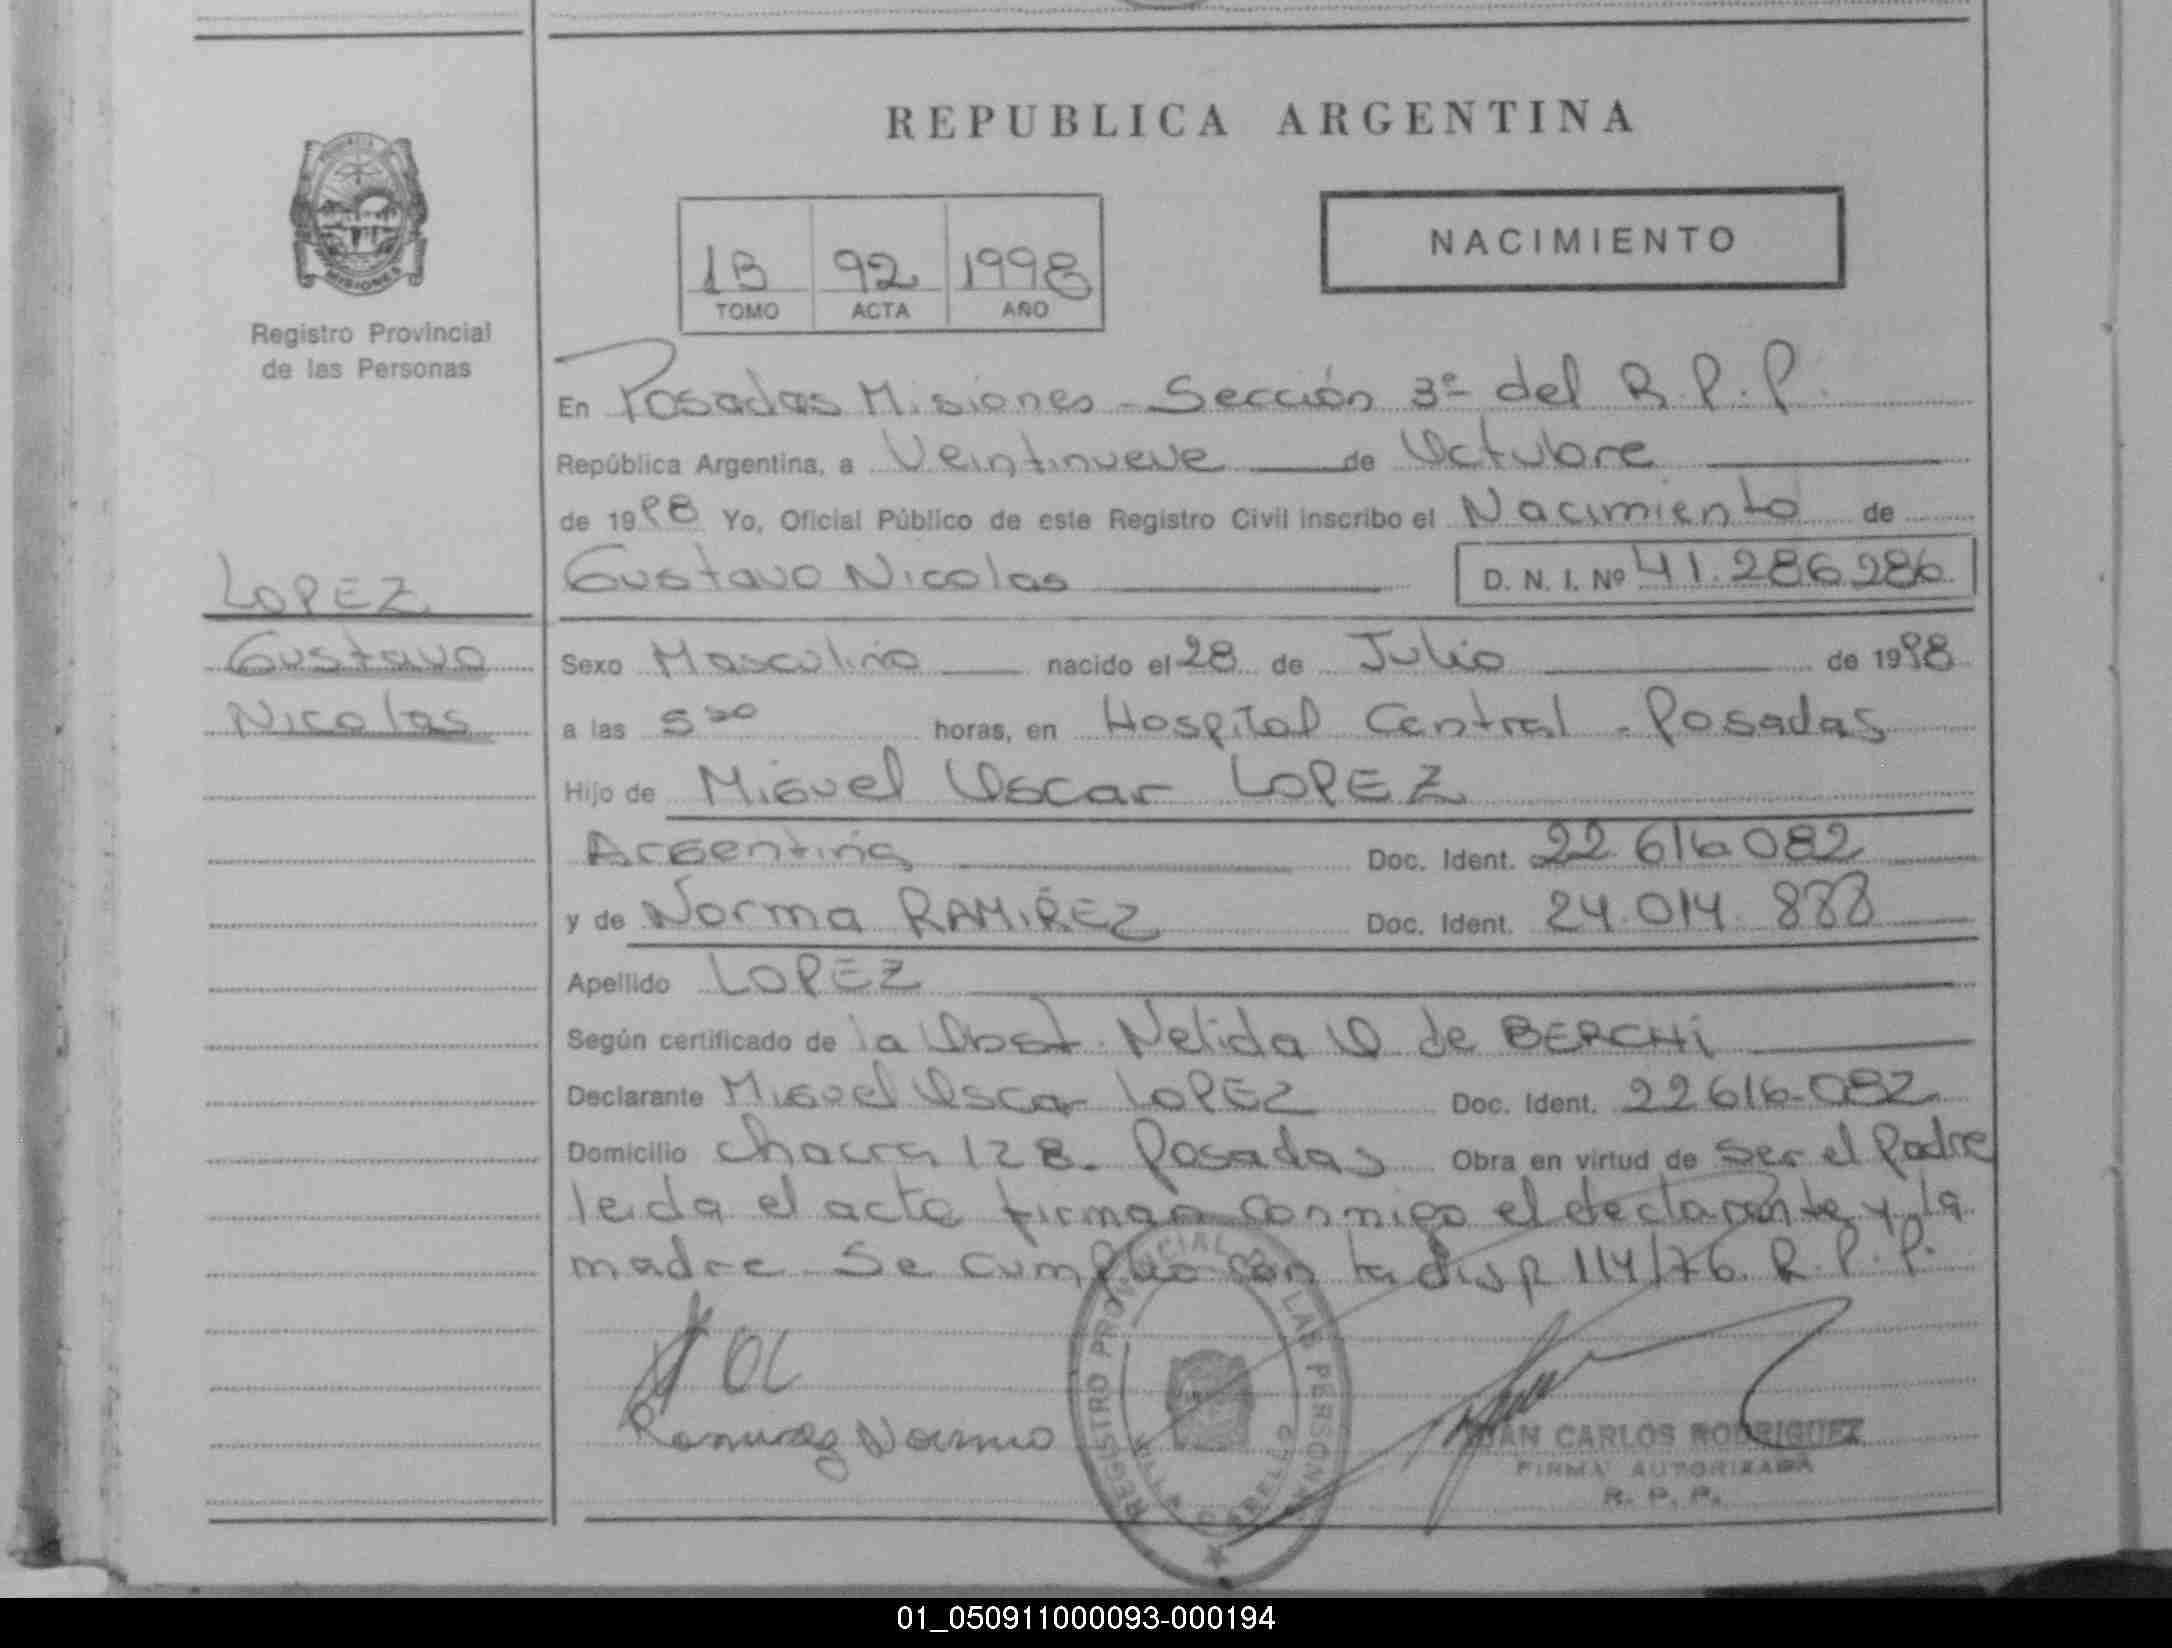 REPUBLICA ARGENTINA
PROVINCIA
MISIONES
Registro Provincial
de las Personas
1B 92 1998
TOMO ACTA AÑO
NACIMIENTO
En Posadas Misiones - Sección 3º del R.P.P.
República Argentina, a Veintinueve de Octubre
de 1998 Yo, Oficial Público de este Registro Civil inscribo el Nacimiento de
Gustavo Nicolas D. N. I. Nº 41.286.286
LOPEZ
Gustavo
Nicolas
Sexo Masculino nacido el 28 de Julio de 1998
a las 5 horas, en Hospital Central - Posadas
Hijo de Miguel Oscar LOPEZ
Argentina Doc. Ident. 22 616 082
y de Norma RAMIREZ Doc. Ident. 24.014.888
Apellido LOPEZ
Según certificado de la Obst. Nelida O de BERCHI
Declarante Miguel Oscar LOPEZ Doc. Ident. 22 616-082
Domicilio chacra 128. Posadas Obra en virtud de ser el Padre
leida el acta firman conmigo el declarante y la
madre Se cumplió con la disp 114/76. R.P.P.
Ramirez Norma
REGISTRO PROVINCIAL DE LAS PERSONAS
VILLA CABELLO
JUAN CARLOS RODRIGUEZ
FIRMA AUTORIZADA
R. P. P.
01_050911000093-000194